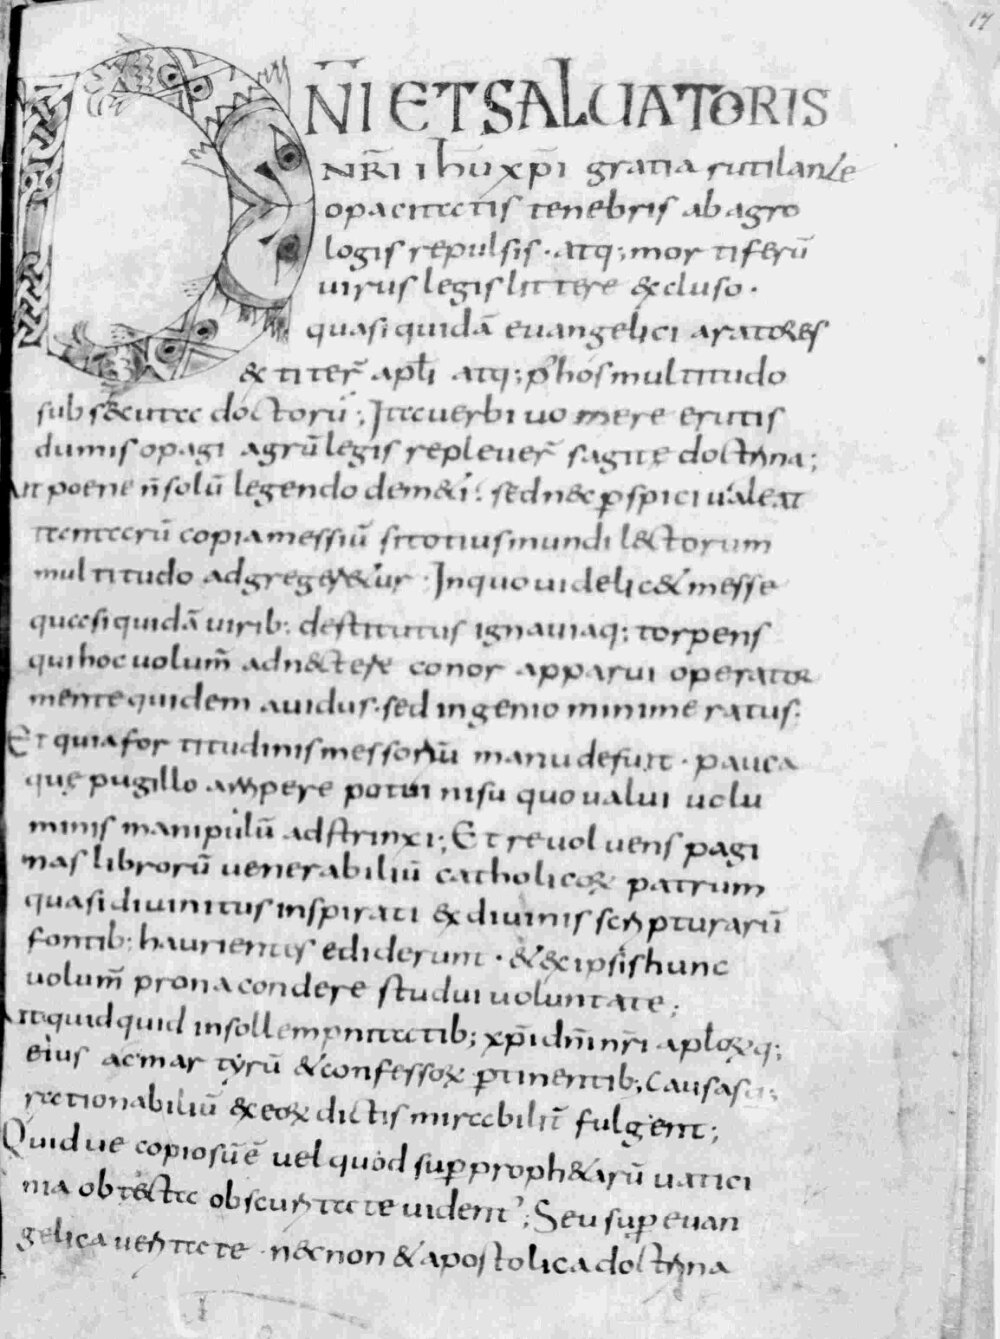 17
DN̄I ET SALUATORIS
NR̄I IHŪ XP̄I gratia rutilante
opacitatis tenebris ab agro
logis repulsis · atq; mortiferū
uirus legis littere &cluso ·
quasi quidā euangelici aratores
& titer̄ apłi atq; p̄ hos multitudo
subsecuta doctorū; Ita cuerbi uomere erutis
dumis opagi agrū legis repleuer̄ sagite doctrina;
At poene n̄ solū legendo dem&i: sed nec p̱spici ualeat
tantarū copia messiū si totius mundi lectorum
multitudo adgreger&ur · In quo uidelic& messe
quasi quidā uirib; destitutus ignauiaq; torpens
qui hoc uolum̄ adnectere conor apparui operator
mente quidem auidus · sed ingenio minime ratus:
Et quia fortitudinis messorū manu desunt · pauca
quę pugillo arripere potui nisu quo ualui uolu
minis manipulū adstrinxi; Et reuoluens pagi
nas librorū uenerabiliū catholicoꝝ patrum
quasi diuinitus inspirati ex diuinis scripturarū
fontib; haurientes ediderunt · & ex ipsis hunc
uolum̄ prona condere studui uoluntate;
At quidquid in sollempnitatib; xp̄i dm̄i nr̄i apłoꝝq;
eius ac martyrū & confessoꝝ p̱tinentib; causasa;
rationabiliū & eoꝝ dictis mirabiliū fulgent;
Quid ue copiosū ē uel quod sup̱ proph&arū uatici
nia obtecta obscuritate uident'; Seu sup̱ euan
gelica ueritate · necnon & apostolica doctrina